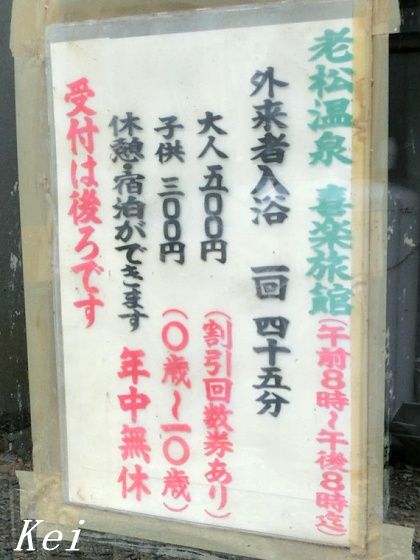 老松温泉 喜楽旅館(午前8時~午後8時迄)
外来者入浴 一回 四十五分
大人 五〇〇円(割引回数券あり)
子供 三〇〇円(〇歳~一〇歳)
休憩・宿泊ができます 年中無休
受付は後ろです
Kei